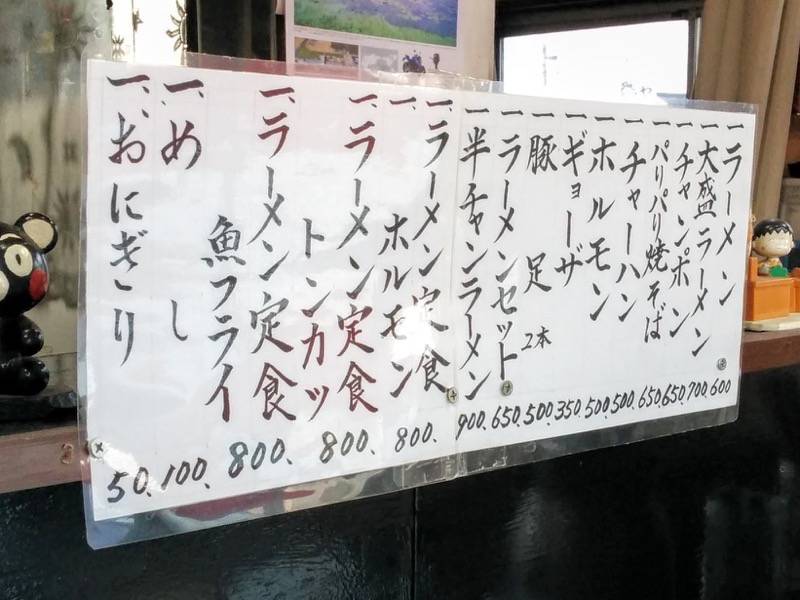 一、ラーメン 600
一、大盛ラーメン 700
一、チャンポン 650
一、パリパリ焼そば 650
一、チャーハン 500
一、ホルモン 500
一、ギョーザ 350
一、豚足 2本 500
一、ラーメンセット 650
一、半チャンラーメン 900
一、ラーメン定食
一、ホルモン 800
一、ラーメン定食
トンカツ 800
一、ラーメン定食
魚フライ 800
一、めし 100
一、おにぎり 50